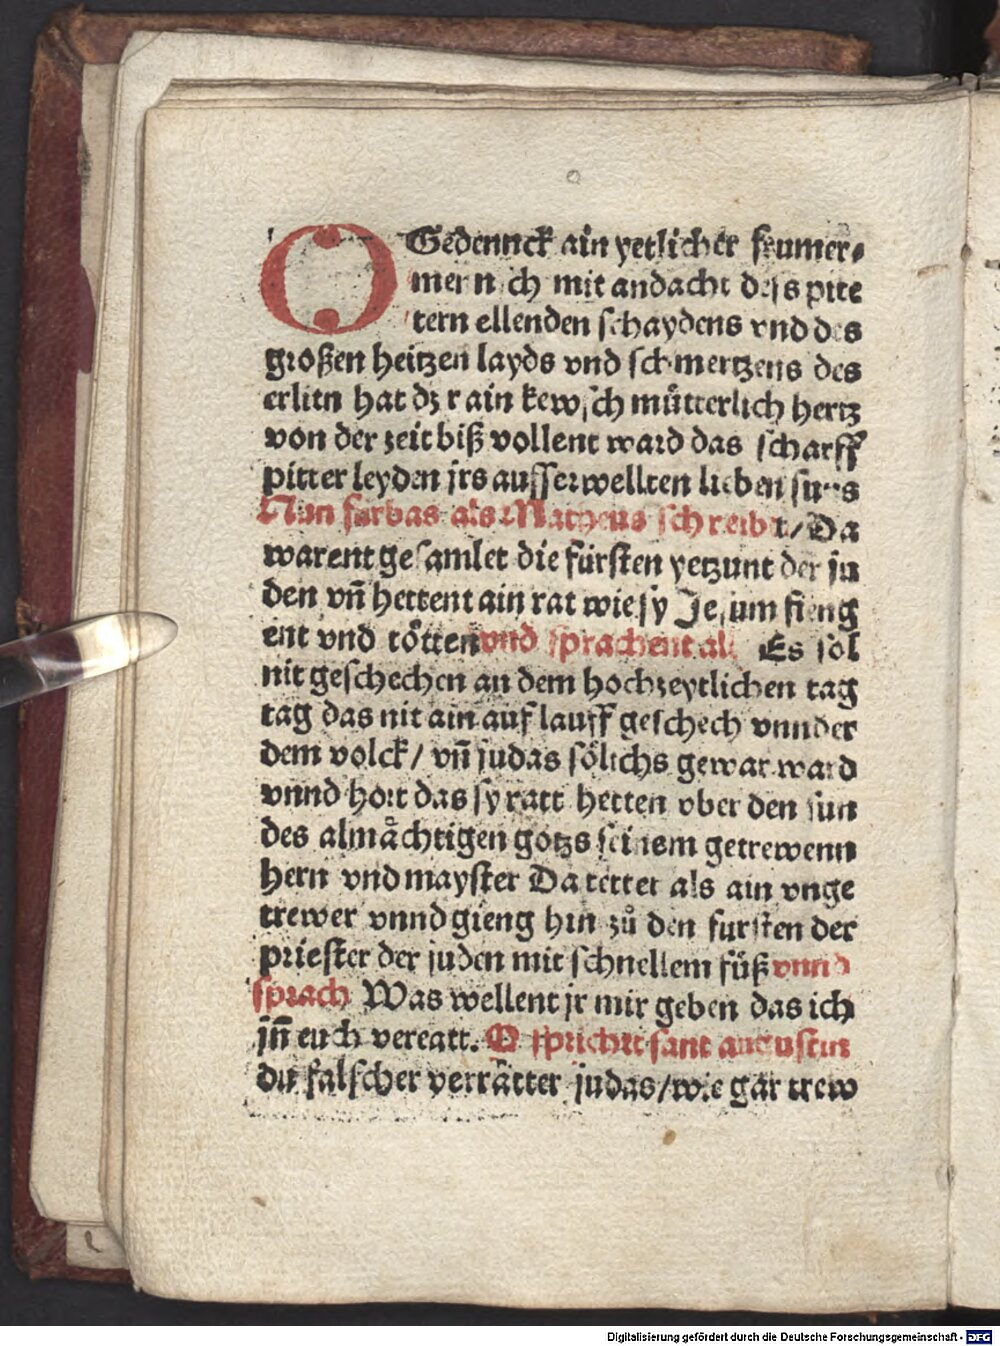 O Gedennck ain yetlicher frumer
mennsch mit andacht dess pite
tern ellenden schaydens vnd des
großen hertzen layds vnd schmertzens des
erlitn hat dz rain kewsch mütterlich hertz
von der zeit biß vollent ward das scharff
pitter leyden jrs ausserwellten lieben suns
Nun furbas als Matheus schreibt/ Da
warent gesamlet die fürsten yetzunt der ju
den vñ hettent ain rat wie sy Jesum fieng
ent vnd tötten vnd sprachent als Es sol
nit geschechen an dem hochzeytlichen tag
tag das nit ain auflauff geschech vnnder
dem volck/ vñ judas sölichs gewar ward
vnnd hort das sy ratt hetten vber den sun
des almächtigen gotzs seinem getrewenn
hern vnd mayster Da tettet als ain vnge
trewer vnnd gieng hin zů den fursten der
priester der juden mit schnellem füß vnnd
sprach Was wellent jr mir geben das ich
jñ euch verratt. O spricht sant augustin
du falscher verrätter judas/ wie gar trew
Digitalisierung gefördert durch die Deutsche Forschungsgemeinschaft - DFG